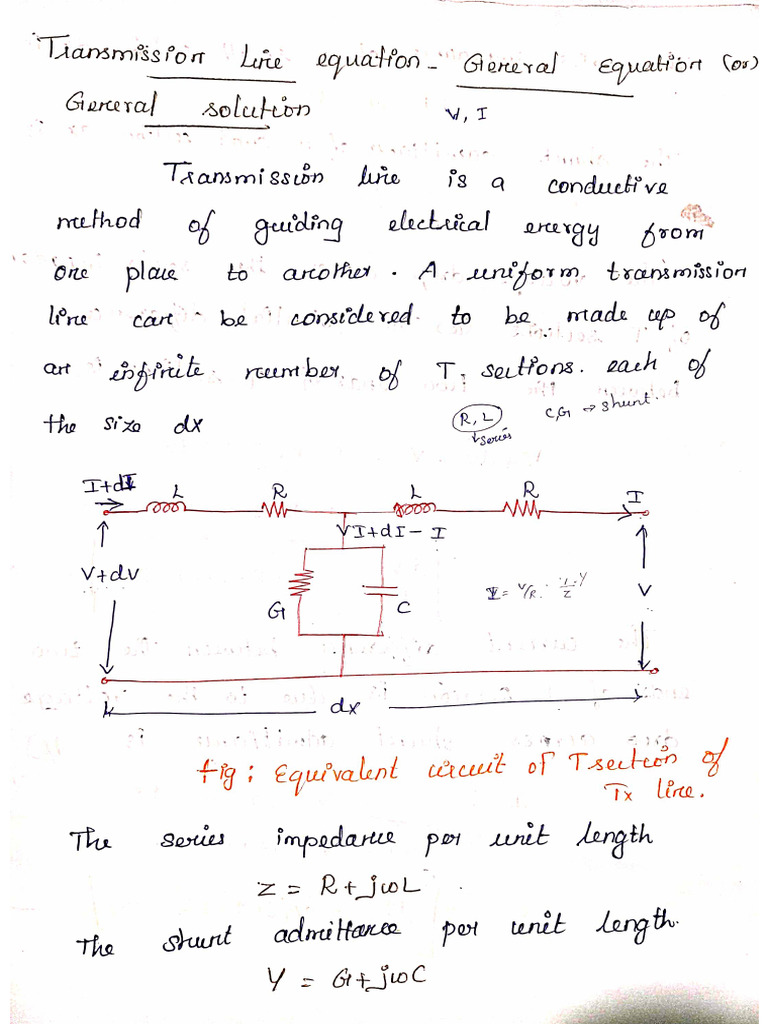 Transmission line equation - General Equation (or)
General solution
V, I
Transmission line is a conductive
method of guiding electrical energy from
one place to another. A uniform transmission
line can be considered to be made up of
an infinite number of T, sections. each of
the size dx
R, L
series
C, G → shunt.
I+dI
L
R
L
R
I
I+dI-I
V+dv
G
C
V
dx
fig: Equivalent circuit of T section of
Tx line.
The series impedance per unit length
Z = R+jωL
The shunt admittance per unit length.
Y = G+jωC